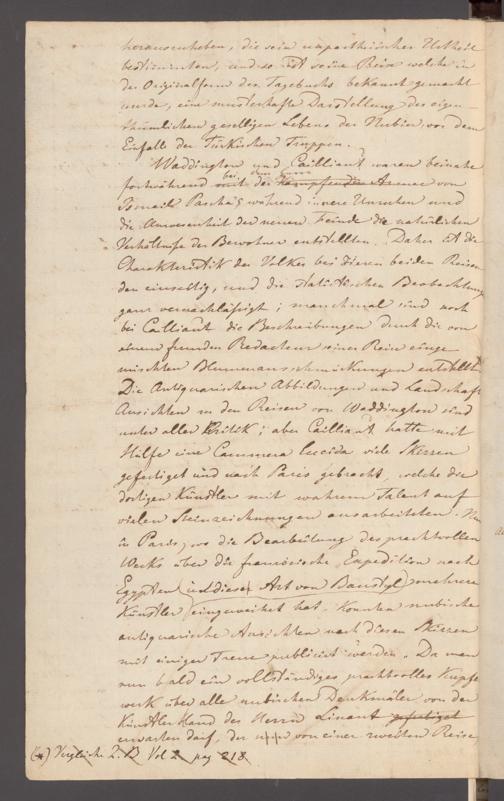 herauszuheben, die sein unpartheiischer Urtheil
bestimmten, und so ist seine Reise welche in
der Originalform des Tagebuchs bekannt gemacht
wurde, eine musterhafte Darstellung des eigen-
thümlichen geselligen Lebens der Nubier vor dem
Einfalle der Türkischen Truppen.
Waddington und Cailliaut waren beinahe
fortwährend mit bei der kämpfenden Armee von
Ismail Pascha, während innere Unruhen und
die Anwesenheit der neuen Feinde die natürlichen
Verhältnisse der Bewohner entstellten. Daher ist die
Charakteristik des Volkes bei diesen beiden Reisen
den einseitig, und die statistischen Beobachtung
ganz vernachlässigt; manchmal sind noch
bei Cailliaut die Beschreibungen durch die von
einem fremden Redacteur seiner Reise einge-
mischten Blumenausschmückungen entstellt.
Die Antiquarischen Abbildungen und Landschaft
Ansichten in den Reisen von Waddington sind
unter aller Kritik; aber Cailliaut hatte mit
Hülfe eine Cammera lucida viele Skizzen
gefertiget und nach Paris gebracht, welche die
dortigen Künstler mit wahrem Talent auf
vielen Steinzeichnungen ausarbeiteten. Nur
in Paris, wo die Bearbeitung des prachtvollen
Werks über die französische Expedition nach
Egypten in diese Art von Baustyl mehrere
Künstler eingeweihet hat, konnten nubische
antiquarische Ansichten nach diesen Skizzen
mit einiger Treue publicirt werden. Da man
nun bald ein vollständiges prachtvolles Kupfer
werk über alle nubischen Denkmäler von der
Künstler Hand des Herrn Linant gefertiget
erwarten darf, der von einer zweiten Reise
(*) Vergleiche Z. B Vol 2 pag 218